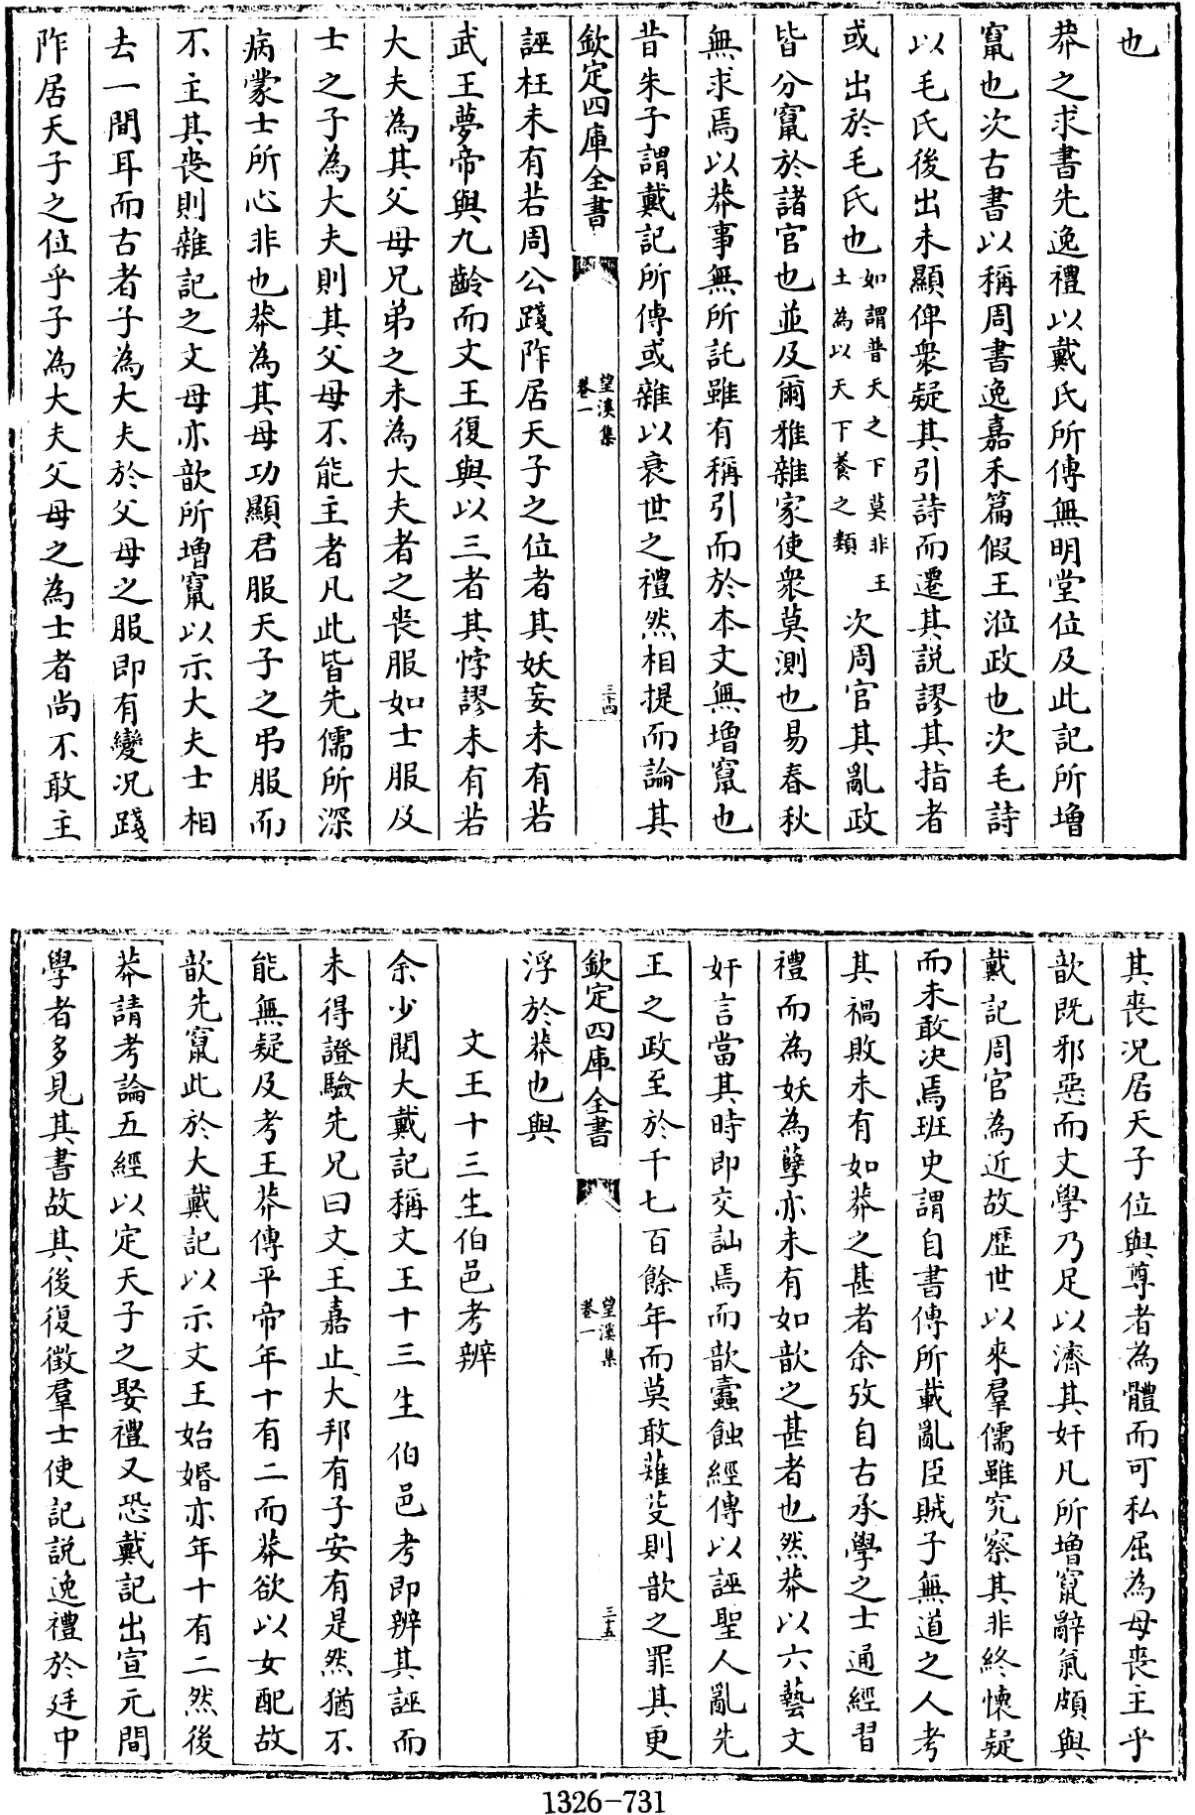 也
莽之求書先逸禮以戴氏所傳無明堂位及此記所增
竄也次古書以稱周書逸嘉禾篇假王涖政也次毛詩
以毛氏後出未顯俾衆疑其引詩而遷其説謬其指者
或出於毛氏也如謂普天之下莫非王土為以天下養之類次周官其亂政
皆分竄於諸官也並及爾雅雜家使衆莫測也易春秋
無求焉以莽事無所託雖有稱引而於本文無增竄也
昔朱子謂戴記所傳或雜以衰世之禮然相提而論其
欽定四庫全書
望溪集
卷一
三十四
誣枉未有若周公踐阼居天子之位者其妖妄未有若
武王夢帝與九齡而文王復與以三者其悖謬未有若
大夫為其父母兄弟之未為大夫者之喪服如士服及
士之子為大夫則其父母不能主者凡此皆先儒所深
病蒙士所心非也莽為其母功顯君服天子之弔服而
不主其喪則雜記之文毋亦歆所增竄以示大夫士相
去一間耳而古者子為大夫於父母之服即有變况踐
阼居天子之位乎子為大夫父母之為士者尚不敢主
其喪况居天子位與尊者為體而可私屈為母喪主乎
歆既邪惡而文學乃足以濟其奸凡所增竄辭氣頗與
戴記周官為近故歴世以來羣儒雖究察其非終懷疑
而未敢决焉班史謂自書傳所載亂臣賊子無道之人考
其禍敗未有如莽之甚者余攷自古承學之士通經習
禮而為妖為孽亦未有如歆之甚者也然莽以六藝文
奸言當其時即交訕焉而歆蠹蝕經傳以誣聖人亂先
王之政至於千七百餘年而莫敢薙芟則歆之罪其更
欽定四庫全書
望溪集
卷一
三十五
浮於莽也與
文王十三生伯邑考辨
余少閱大戴記稱文王十三生伯邑考即辨其誣而
未得證驗先兄曰文王嘉止大邦有子安有是然猶不
能無疑及考王莽傳平帝年十有二而莽欲以女配故
歆先竄此於大戴記以示文王始婚亦年十有二然後
莽請考論五經以定天子之娶禮又恐戴記出宣元間
學者多見其書故其後復徵羣士使記説逸禮於廷中
1326-731